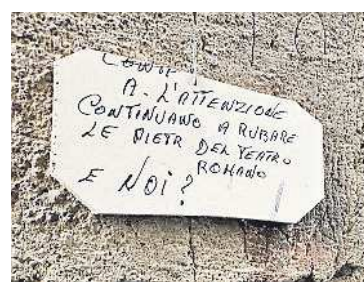 A. L'ATTENZIONE
CONTINUANO A RUBARE
LE PIETR DEL TEATRO
ROMANO
E NOI?